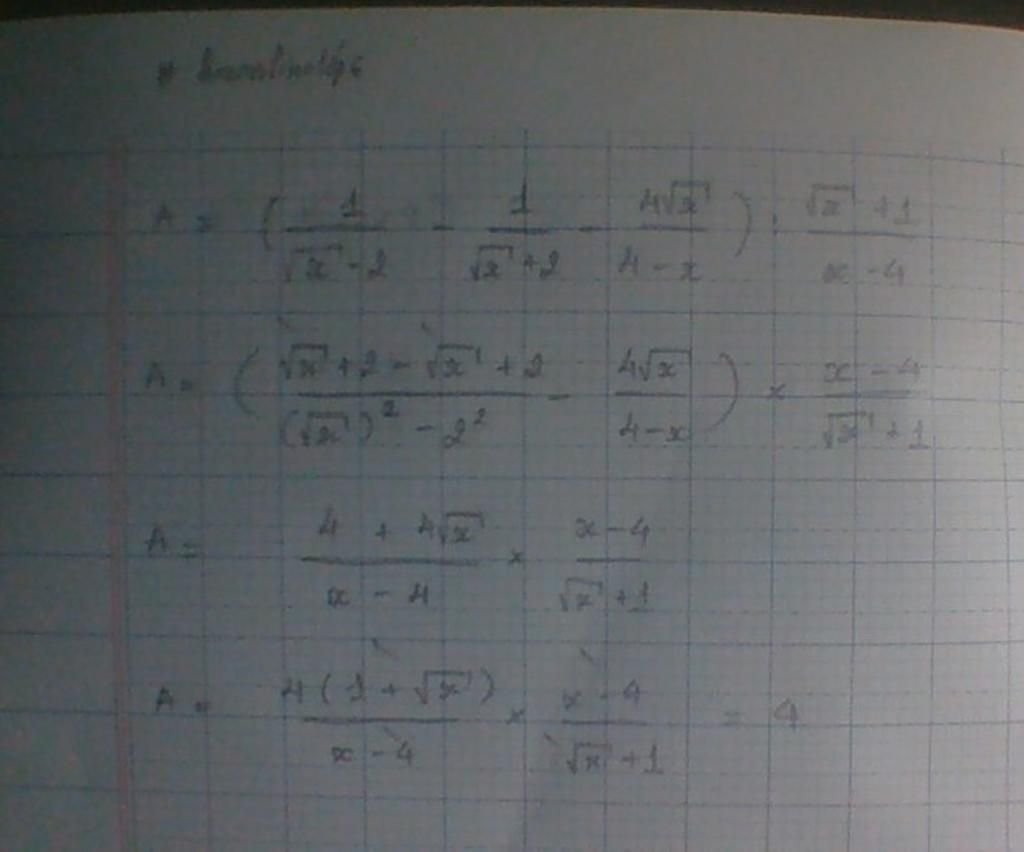 A = ( 1/(√x - 2) - 1/(√x + 2) - 4√x/(4 - x) ) : (√x + 1)/(x - 4)
A = ( (√x + 2 - √x + 2)/((√x)² - 2²) - 4√x/(4 - x) ) × (x - 4)/(√x + 1)
A = (4 + 4√x)/(x - 4) × (x - 4)/(√x + 1)
A = 4(1 + √x)/(x - 4) × (x - 4)/(√x + 1) = 4